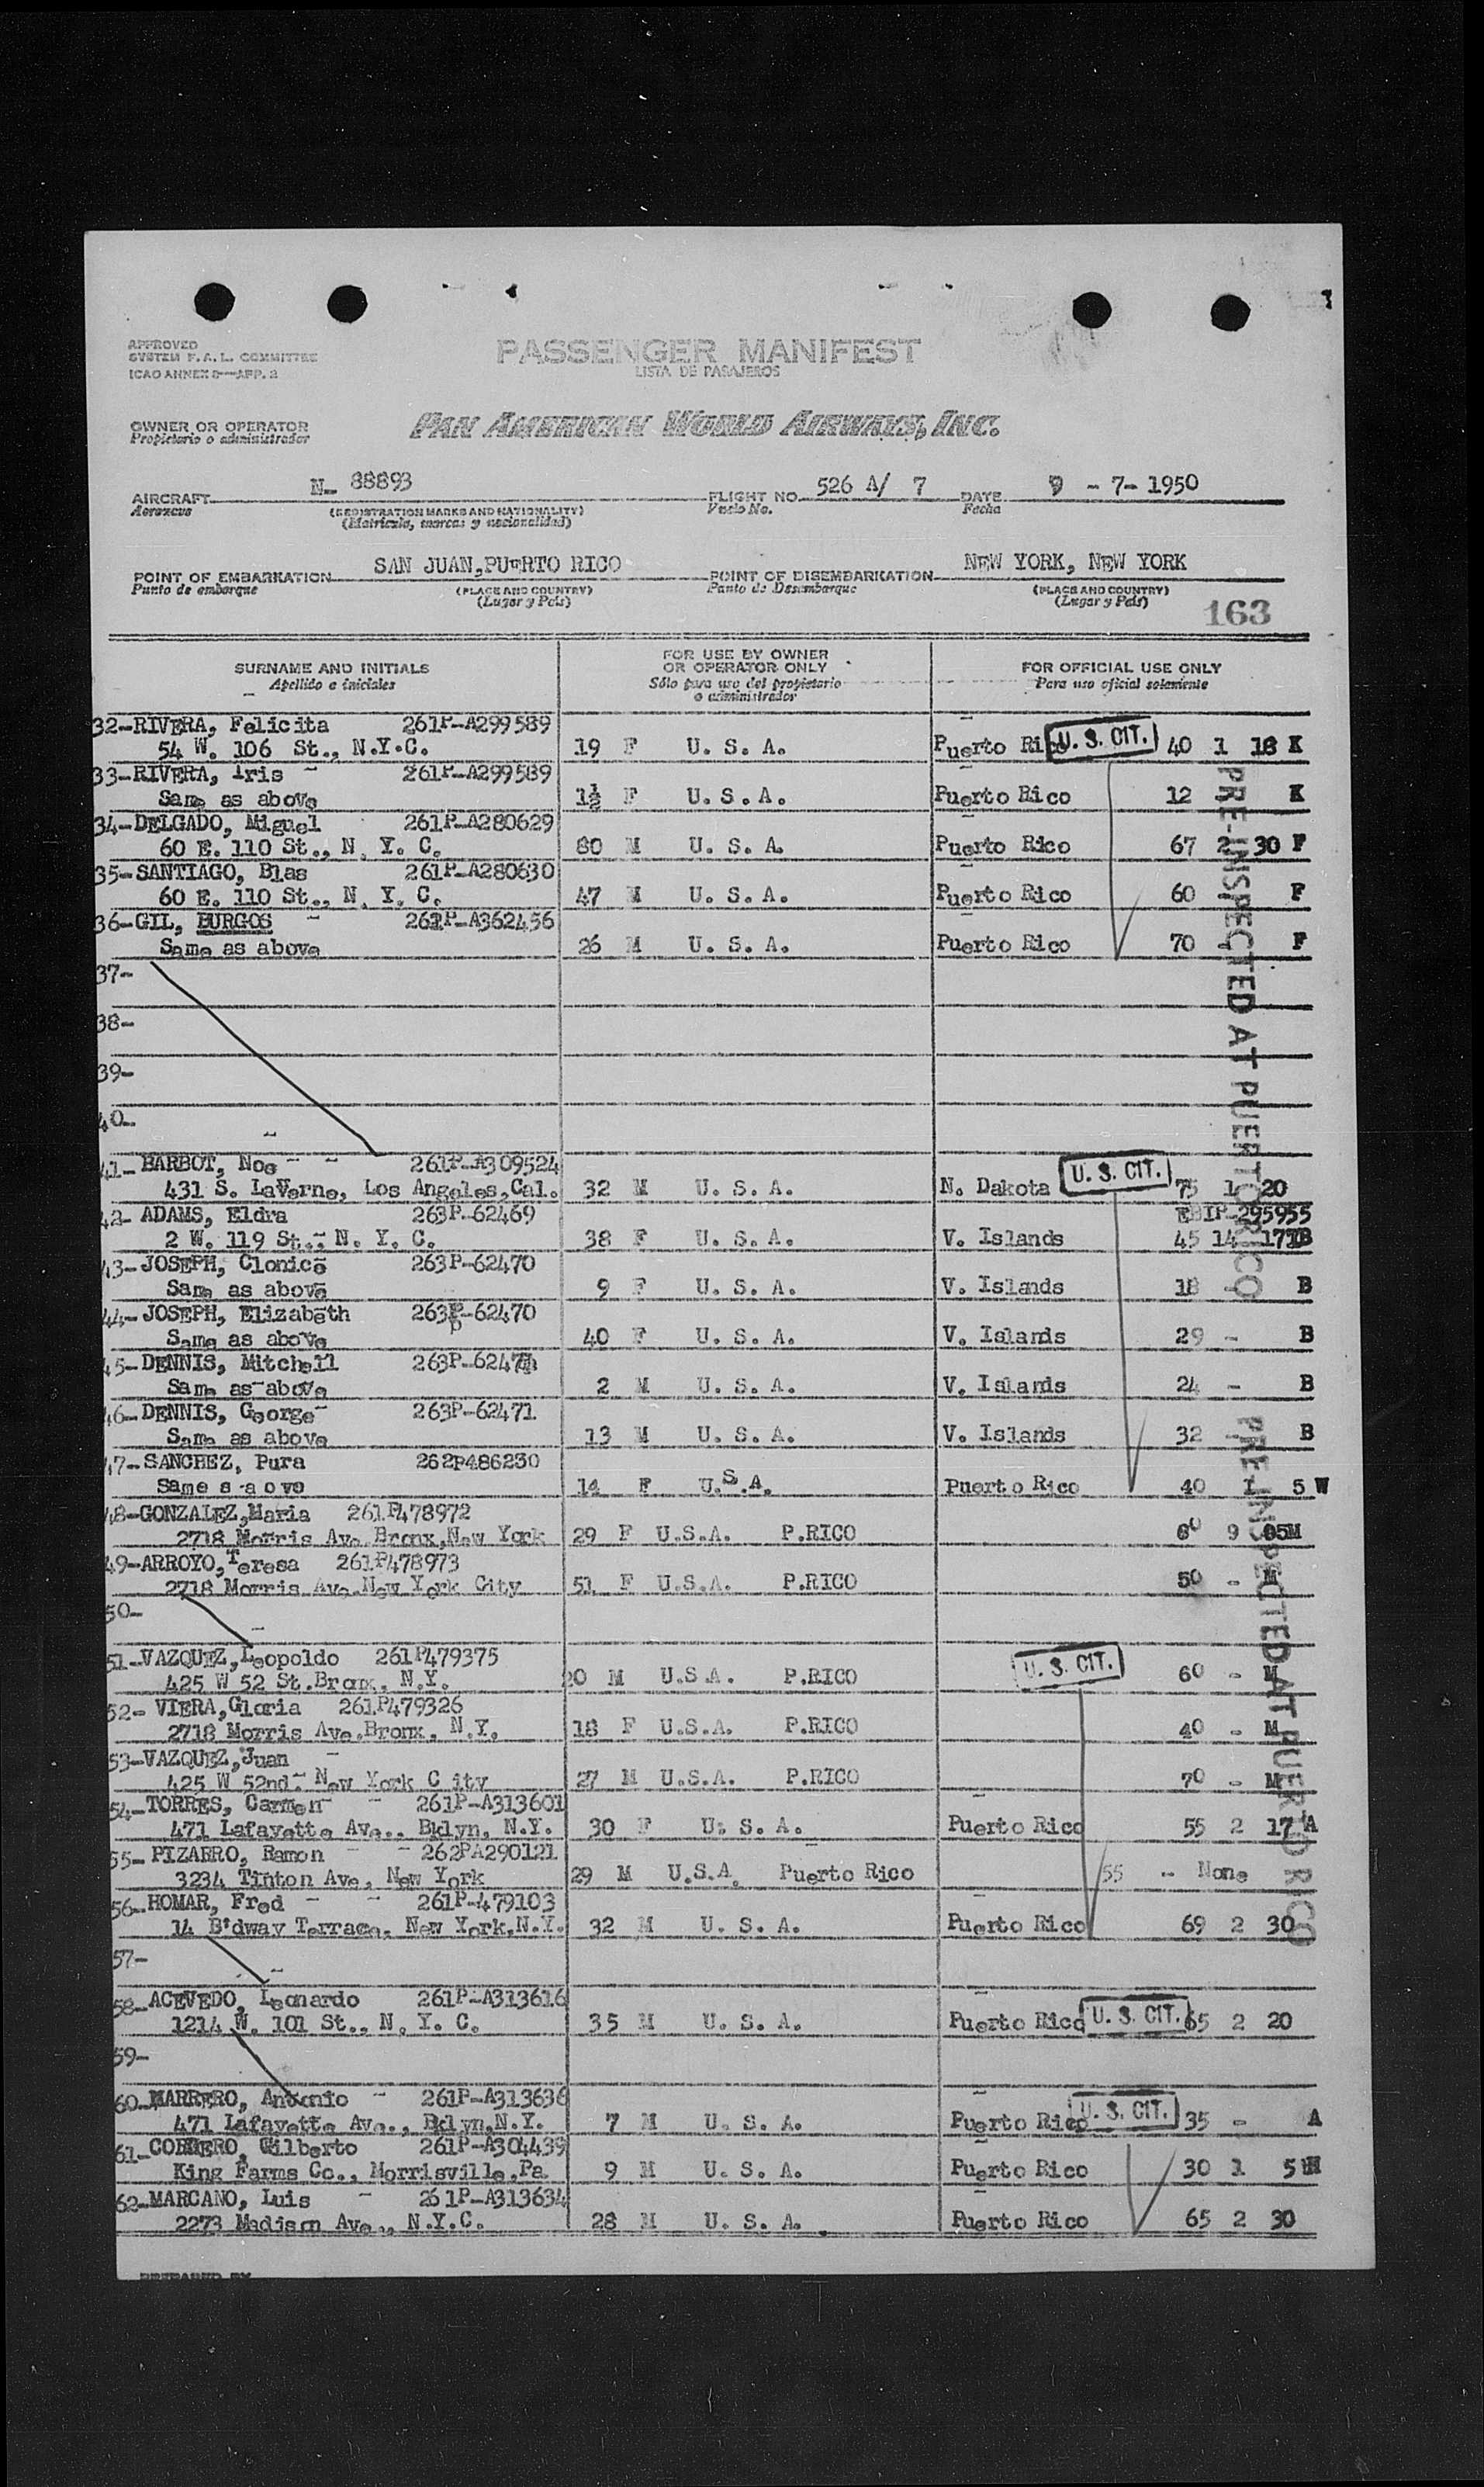 APPROVED
SYSTEM F. A. L. COMMITTEE
ICAO ANNEX 9—APP. 2
PASSENGER MANIFEST
LISTA DE PASAJEROS
OWNER OR OPERATOR
Propietario o administrador
PAN AMERICAN WORLD AIRWAYS, INC.
AIRCRAFT N- 88893 FLIGHT NO. 526 A/ 7 DATE 9 - 7- 1950
Aeronave (REGISTRATION MARKS AND NATIONALITY) Vuelo No. Fecha
(Matricula, marcas y nacionalidad)
POINT OF EMBARKATION SAN JUAN,PUERTO RICO POINT OF DISEMBARKATION NEW YORK, NEW YORK
Punto de embarque (PLACE AND COUNTRY) Punto de Desembarque (PLACE AND COUNTRY)
(Lugar y Pais) (Lugar y Pais)
163
SURNAME AND INITIALS FOR USE BY OWNER OR OPERATOR ONLY FOR OFFICIAL USE ONLY
Apellido e iniciales Sólo para uso del propietario o administrador Para uso oficial solamente
32-RIVERA, Felicita 261P-A299589
54 W. 106 St., N.Y.C. 19 F U. S. A. Puerto Rico U. S. CIT. 40 1 18 K
33-RIVERA, Iris - 261P-A299589
Same as above 1½ F U. S. A. Puerto Rico 12 K
34-DELGADO, Miguel 261P-A280629
60 E. 110 St., N. Y. C. 80 M U. S. A. Puerto Rico 67 2 30 F
35-SANTIAGO, Blas 261P-A280630
60 E. 110 St., N. Y. C. 47 M U. S. A. Puerto Rico 60 F
36-GIL, BURGOS - 261P-A362456
Same as above 26 M U. S. A. Puerto Rico 70 F
37-
38-
39-
40-
41- BARBOT, Noe - - 261P-A309524
431 S. LaVerne, Los Angeles,Cal. 32 M U. S. A. N. Dakota U. S. CIT. 75 1 20
42- ADAMS, Eldra 263P-62469 295955
2 W. 119 St.- N. Y. C. 38 F U. S. A. V. Islands 45 14 17 B
43-JOSEPH, Clonice 263P-62470
Same as above 9 F U. S. A. V. Islands 18 B
44-JOSEPH, Elizabeth 263P-62470
Same as above 40 F U. S. A. V. Islands 29 - B
45-DENNIS, Mitchell 263P-6247
Same as above 2 M U. S. A. V. Islands 24 - B
46-DENNIS, George- 263P-62471
Same as above 13 M U. S. A. V. Islands 32 B
47-SANCHEZ, Pura 262P486230
Same s a o ve 14 F U.S.A. Puerto Rico 40 1 5 W
48-GONZALEZ,Maria 261P478972
2718 Morris Ave Bronx,New York 29 F U.S.A. P.RICO 60 9 05M
49-ARROYO,Teresa 261P478973
2718 Morris Ave.New York City 51 F U.S.A. P.RICO 50 - M
50-
51-VAZQUEZ,Leopoldo 261P479375
425 W 52 St.Bronx. N.Y. 20 M U.S.A. P.RICO U. S. CIT. 60 - M
52- VIERA,Gloria 261P479326
2718 Morris Ave.Bronx. N.Y. 18 F U.S.A. P.RICO 40 - M
53-VAZQUEZ,Juan -
425 W 52nd.- New York C ity 27 M U.S.A. P.RICO 70 - M
54-TORRES, Carmen - 261P-A313601
471 Lafayette Ave., Bklyn, N.Y. 30 F U. S. A. Puerto Rico 55 2 17 A
55- PIZARRO, Ramon - - 262PA290121
3234 Tinton Ave, New York 29 M U.S.A. Puerto Rico 55 - None
56-HOMAR, Fred - - 261P-479103
14 B'dway Terrace, New York,N.Y. 32 M U. S. A. Puerto Rico 69 2 30
57-
58-ACEVEDO, Leonardo 261P-A313616
1214 W. 101 St., N. Y. C. 35 M U. S. A. Puerto Rico U. S. CIT. 65 2 20
59-
60-MARRERO, Antonio - 261P-A313636
471 Lafayette Ave., Bklyn,N.Y. 7 M U. S. A. Puerto Rico U. S. CIT. 35 - A
61-CORDERO, Gilberto 261P-A304439
King Farms Co., Morrisville,Pa 9 M U. S. A. Puerto Rico 30 1 5
62-MARCANO, Luis - 261P-A313634
2273 Madison Ave., N.Y.C. 28 M U. S. A. Puerto Rico 65 2 30
PRE-INSPECTED AT PUERTO RICO
PRE-INSPECTED AT PUERTO RICO
PREPARED BY